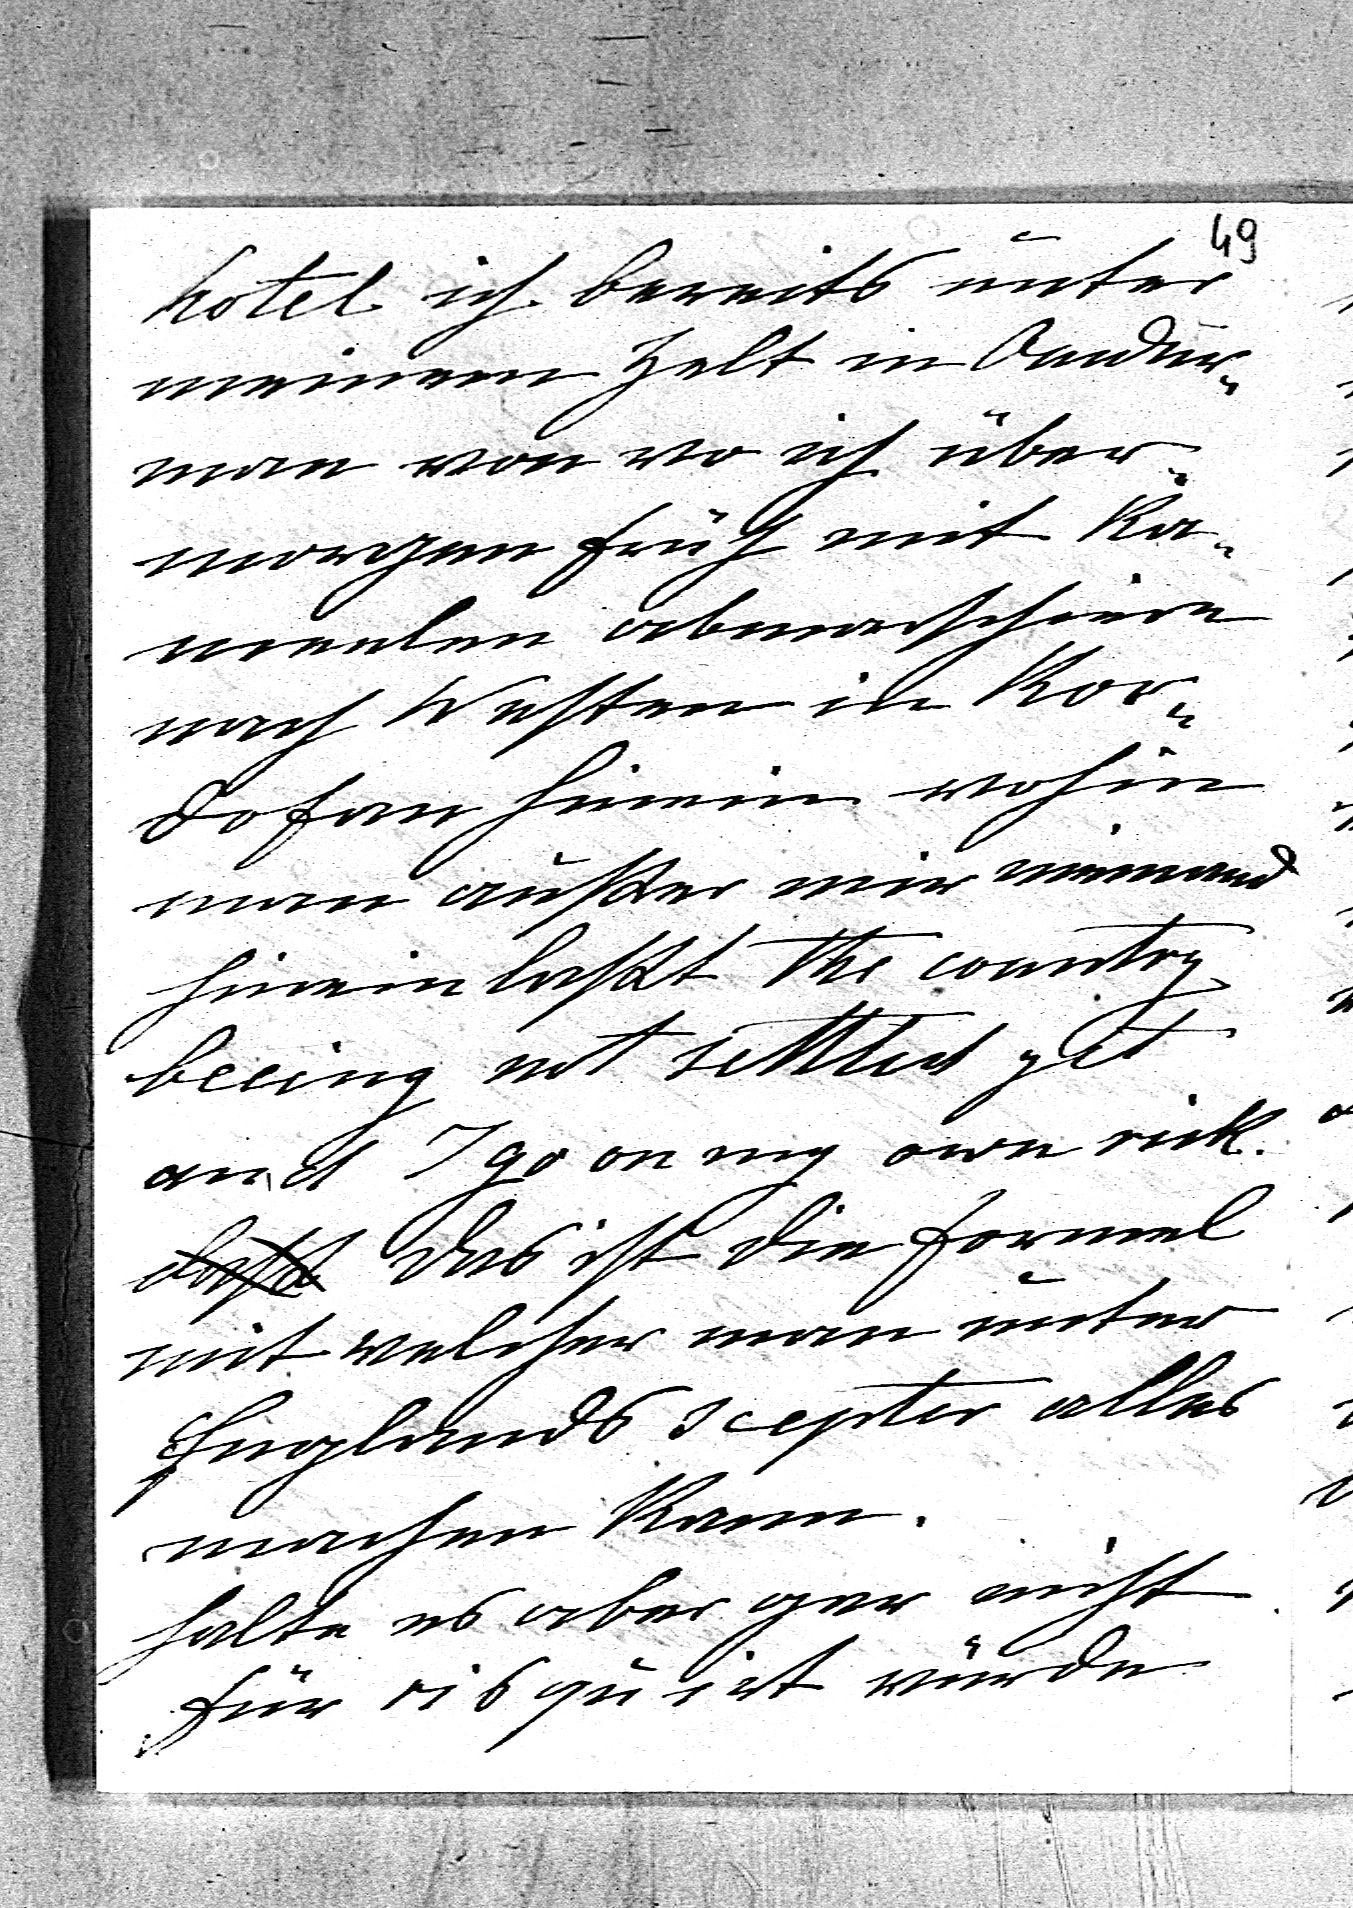 49
hotel ich bereits unter
meinem Zelt in Omdur-
man von wo ich über-
morgen früh mit Ka-
meelen abmarschiere
nach Westen in Kor-
dofan hinein wohin
man außer mir niemand
hinein laßt the country
beeing not settled yet
and I go on my own risk.
das ist die formel
mit welcher man unter
Englands scepter alles
machen kann.
halte es aber gar nicht
für risquirt würde